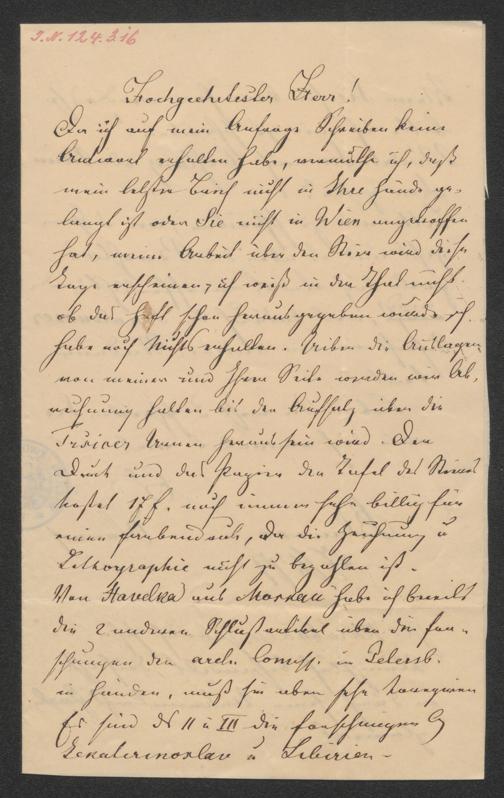 J.N. 124.316
Hochgeehrtester Herr!
Da ich auf mein Anfrage Schreiben keine
Antwort erhalten habe, vermuthe ich, daß
mein letzter Brief nicht in Ihre Hände ge-
langt ist oder Sie nicht in Wien angetroffen
hat, meine Arbeit über den wird diese
Tage erscheinen, ich weiß in der That nicht
ob das Heft schon herausgegeben wurde, ich
habe noch Nichts erhalten. Uiber die Auslagen
von meiner und Ihrer Seite werden wir Ab-
rechnung halten bis der Aufsatz über die
Urnen heraus sein wird. Der
Druck und das Papier der Tafel des
kostet 17 f. noch immer sehr billig für
einen Farbendruck, da die Zeichnung u
Lithographie nicht zu bezahlen ist.
Von Havelka aus Moskau habe ich bereits
die 2 anderen Schlußartikel über die For-
schungen der arch. Comiss. in Petersb.
in Händen, muß sie aber sehr corrigiren
Es sind II u III die Forschungen
Ekaterinoslav u Sibirien -